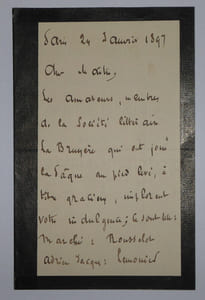 Paris 24 Janvier 1897
Cher Maître,
Les amateurs, membres
de la Société littéraire
La Bruyère qui ont joué
la Pâque au pied levé, à
titre gracieux, implorent
votre indulgence; ce sont M.M.
Marché: Rousselot
Adrien Jacque: